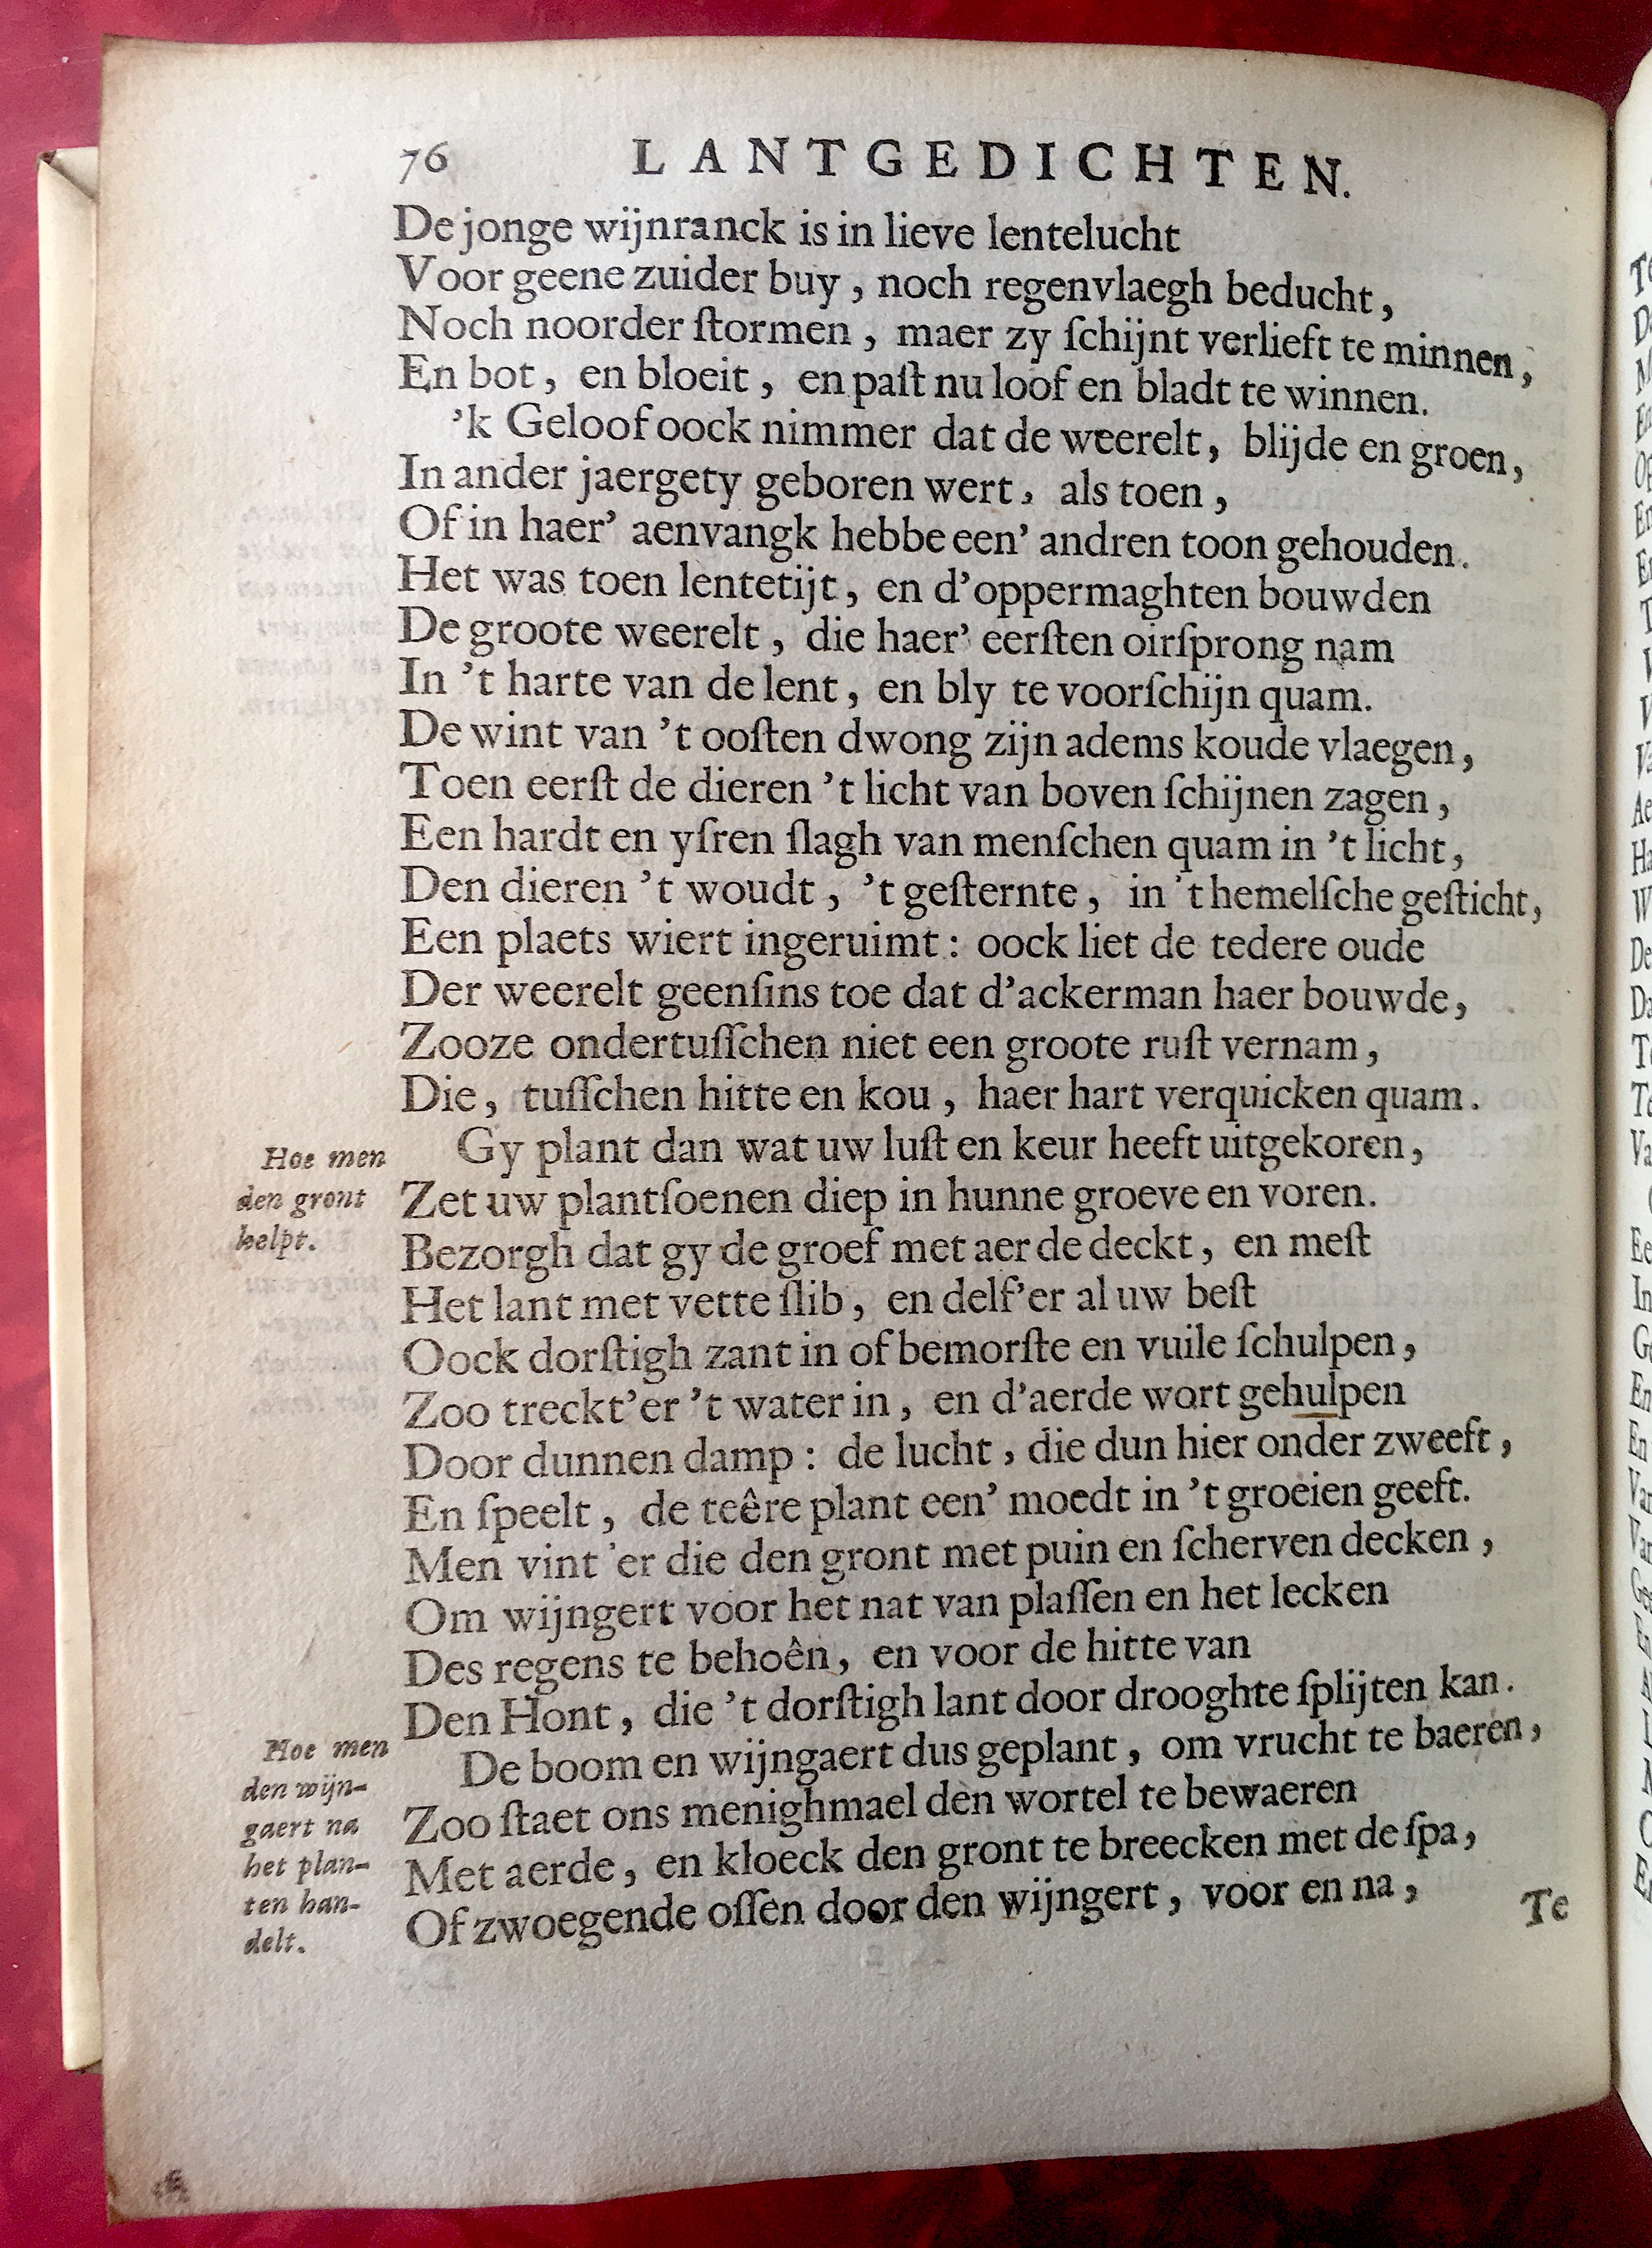 76 LANTGEDICHTEN.
De jonge wijnranck is in lieve lentelucht
Voor geene zuider buy, noch regenvlaegh beducht,
Noch noorder ſtormen, maer zy ſchijnt verlieft te minnen,
En bot, en bloeit, en paſt nu loof en bladt te winnen.
'k Geloof oock nimmer dat de weerelt, blijde en groen,
In ander jaergety geboren wert, als toen,
Of in haer' aenvangk hebbe een' andren toon gehouden.
Het was toen lentetijt, en d'oppermaghten bouwden
De groote weerelt, die haer' eerſten oirſprong nam
In 't harte van de lent, en bly te voorſchijn quam.
De wint van 't ooſten dwong zijn adems koude vlaegen,
Toen eerſt de dieren 't licht van boven ſchijnen zagen,
Een hardt en yſren ſlagh van menſchen quam in 't licht,
Den dieren 't woudt, 't geſternte, in 't hemelſche geſticht,
Een plaets wiert ingeruimt: oock liet de tedere oude
Der weerelt geenſins toe dat d'ackerman haer bouwde,
Zooze ondertuſſchen niet een groote ruſt vernam,
Die, tuſſchen hitte en kou, haer hart verquicken quam.
Hoe men
den gront
helpt.
Gy plant dan wat uw luſt en keur heeft uitgekoren,
Zet uw plantſoenen diep in hunne groeve en voren.
Bezorgh dat gy de groef met aerde deckt, en meſt
Het lant met vette ſlib, en delf'er al uw beſt
Oock dorſtigh zant in of bemorſte en vuile ſchulpen,
Zoo treckt'er 't water in, en d'aerde wort gehulpen
Door dunnen damp: de lucht, die dun hier onder zweeft,
En ſpeelt, de teêre plant een' moedt in 't groeien geeft.
Men vint 'er die den gront met puin en ſcherven decken,
Om wijngert voor het nat van plaſſen en het lecken
Des regens te behoên, en voor de hitte van
Den Hont, die 't dorſtigh lant door drooghte ſplijten kan.
Hoe men
den wijn-
gaert na
het plan-
ten han-
delt.
De boom en wijngaert dus geplant, om vrucht te baeren,
Zoo ſtaet ons menighmael den wortel te bewaeren
Met aerde, en kloeck den gront te breecken met de ſpa,
Of zwoegende oſſen door den wijngert, voor en na,
Te